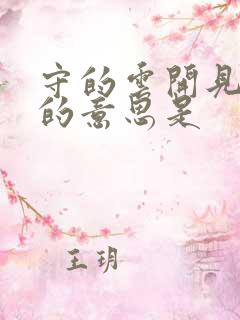 守的雲開見
的意思是
王玥